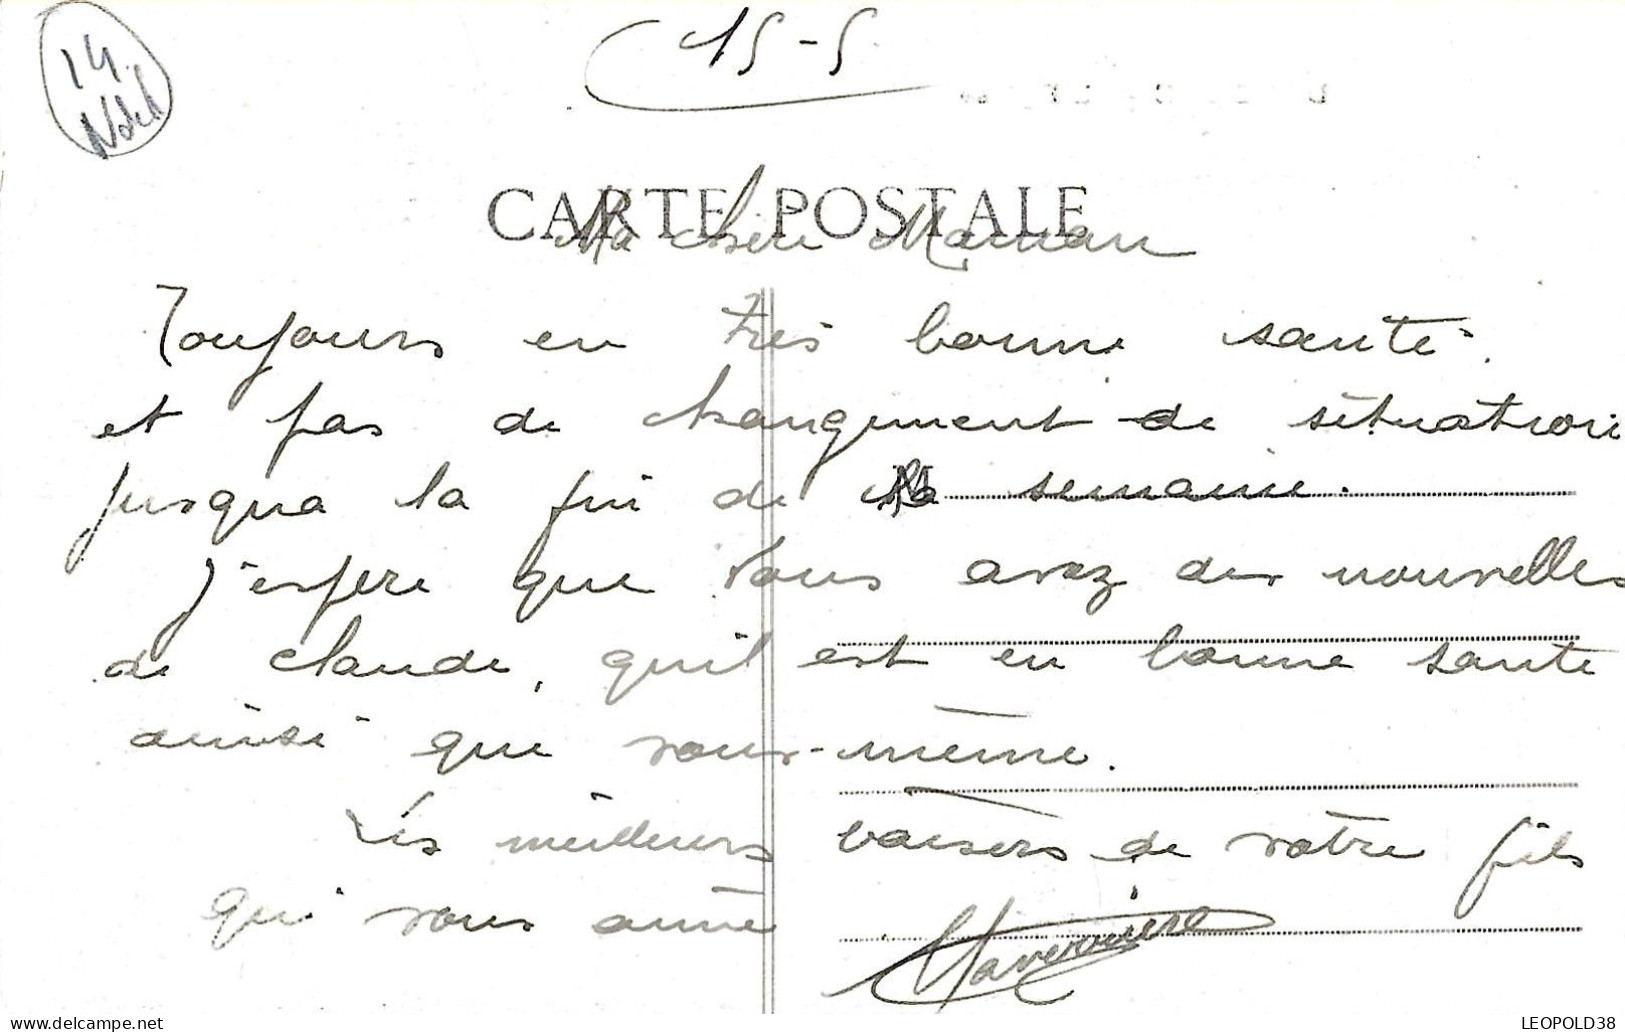 14
15-5
CARTE POSTALE
Ma chère Maman
Toujours en très bonne santé.
et pas de changement de situation
jusqua la fin de la semaine.
J'espere que vous avez des nouvelles
de Claude, qu'il est en bonne sante
ainsi que vous-même.
Les meilleurs baisers de votre fils
qui vous aime
LEOPOLD38